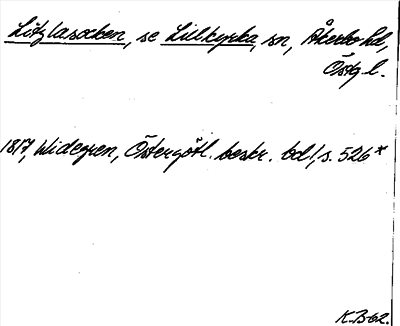 Litzlasocken, se Lillkyrka, sn, Åkerbo hd,
Östg l.
1817, Widegren, Östergötl. beskr. bd 1, s. 526*
K.B-62.